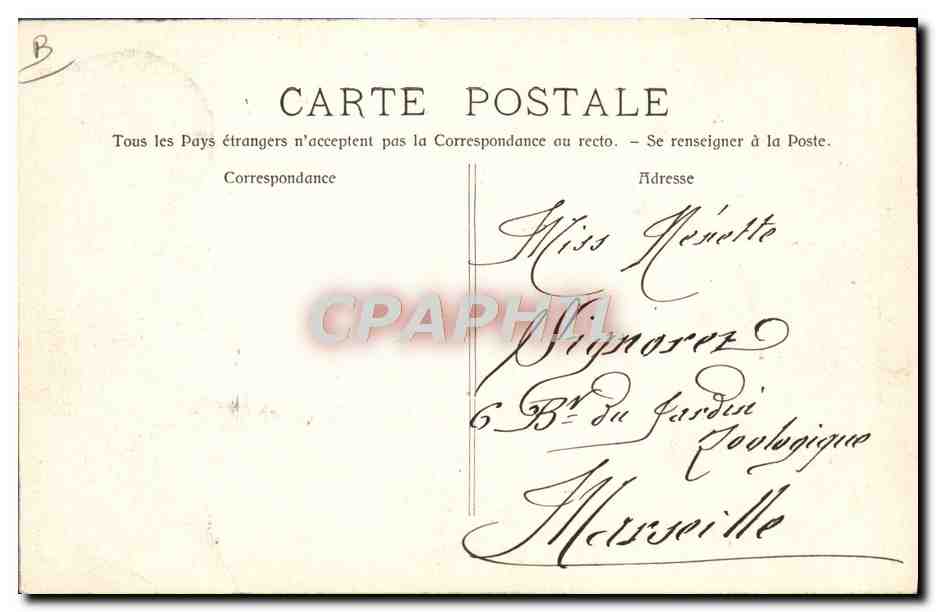 B
CARTE POSTALE
Tous les Pays étrangers n'acceptent pas la Correspondance au recto. – Se renseigner à la Poste.
Correspondance
Adresse
Miss Nénette
CPAPHIL
Signoret
6 Bd du Jardin
Zoologique
Marseille